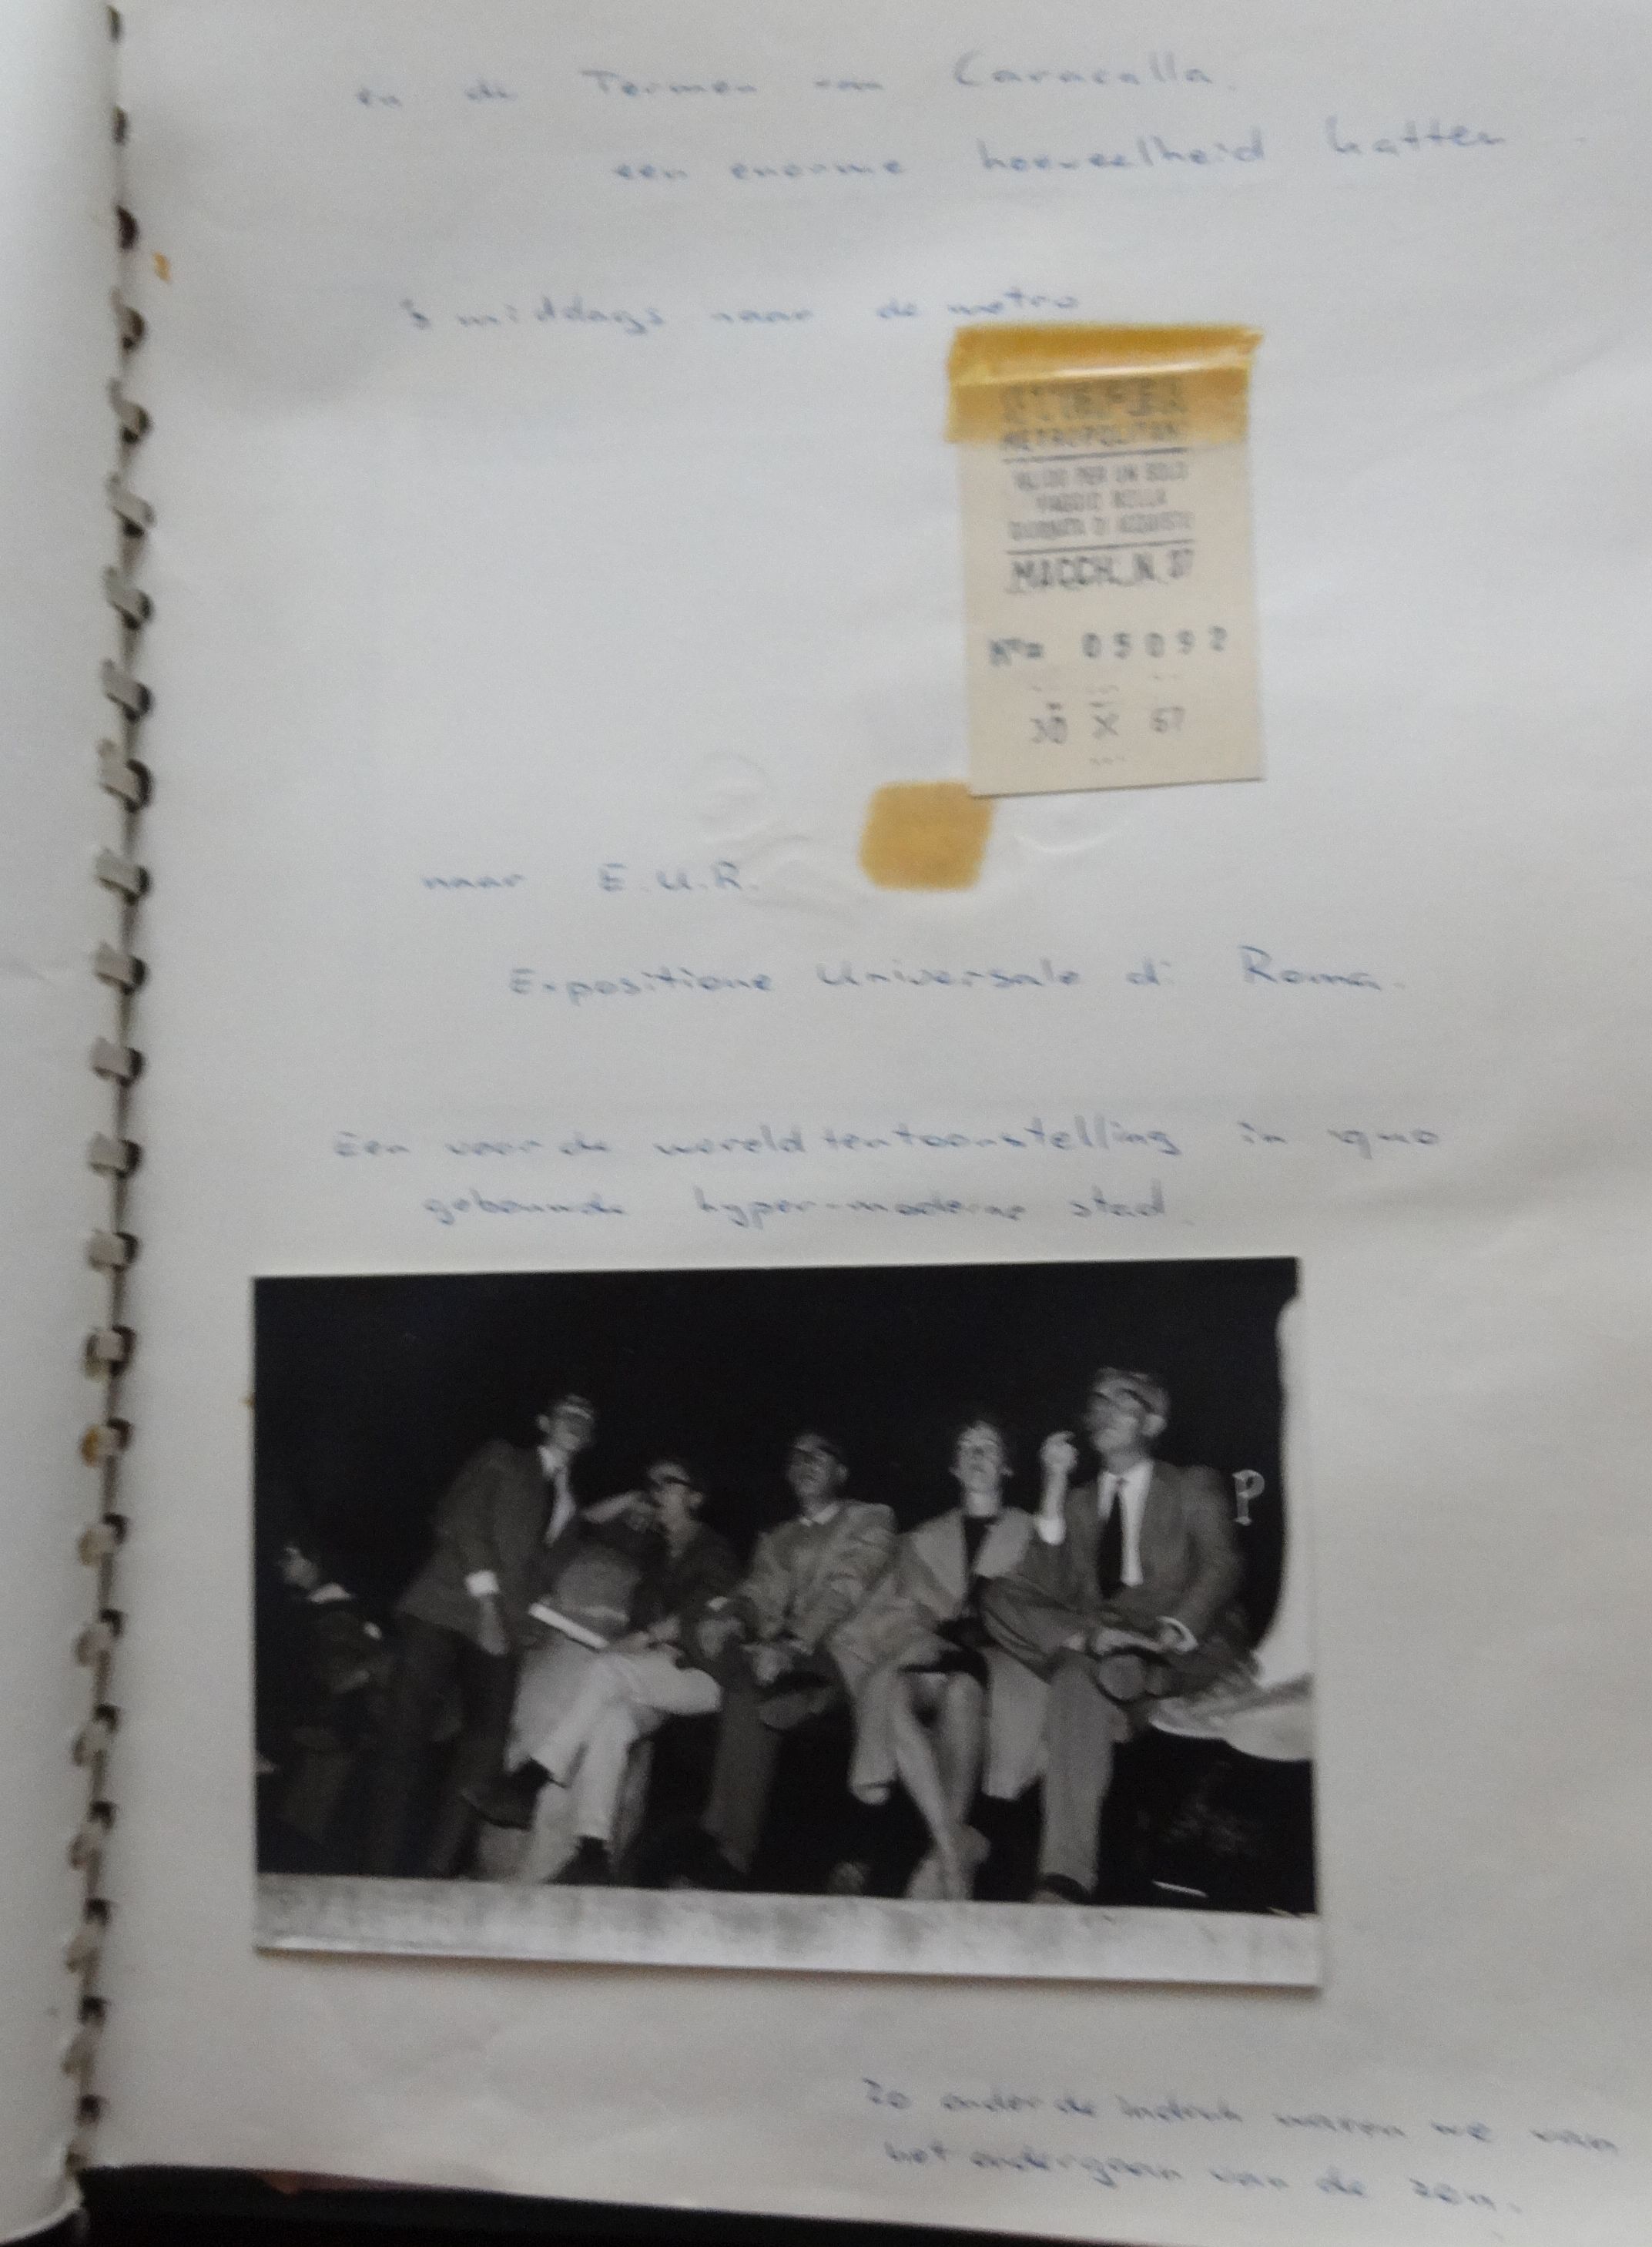 en de Termen van Caracalla.
een enorme hoeveelheid katten
's middags naar de metro
S.T.E.F.E.R.
METROPOLITANA
VALIDO PER UN SOLO
VIAGGIO NELLA
GIORNATA DI ACQUISTO
MACCH. N. 37
Nº= 05092
X 67
naar E.U.R.
Expositione Universale di Roma.
Een voor de wereldtentoonstelling in 1940
gebouwde hyper-moderne stad.
P
Zo onder de indruk waren we van
het ondergaan van de zon.